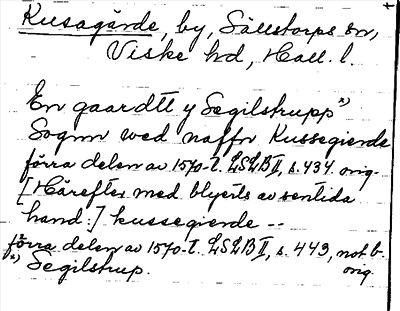 Kusagårde, by, Sällstorps sn,
Viske hd, Hall. l.
En gaardtt y Segilstrupp*)
Sognn wed naffn Kussegierde
förra delen av 1570-t. LSLB II, s. 434. orig.
[Härefter med blyerts av sentida
hand:] kussegierde --
förra delen av 1570-t. LSLB II, s. 443, not b.
orig.
*) Segilstrup.